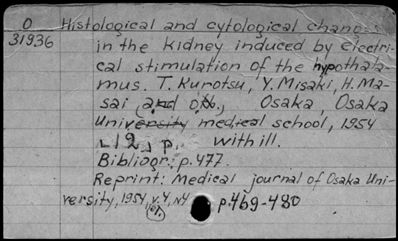 O Histological and cytological changes
31936 in the kidney induced by electri-
cal stimulation of the hypothala-
mus. T. Kurotsu, Y. Misaki, H. Ma-
sai (and oth.) Osaka, Osaka
University medical school, 1954
[12] p. with ill.
Bibliogr.: p. 477.
Reprint: Medical journal of Osaka Uni-
versity, 1954, v. 4, N4 p. 469-480